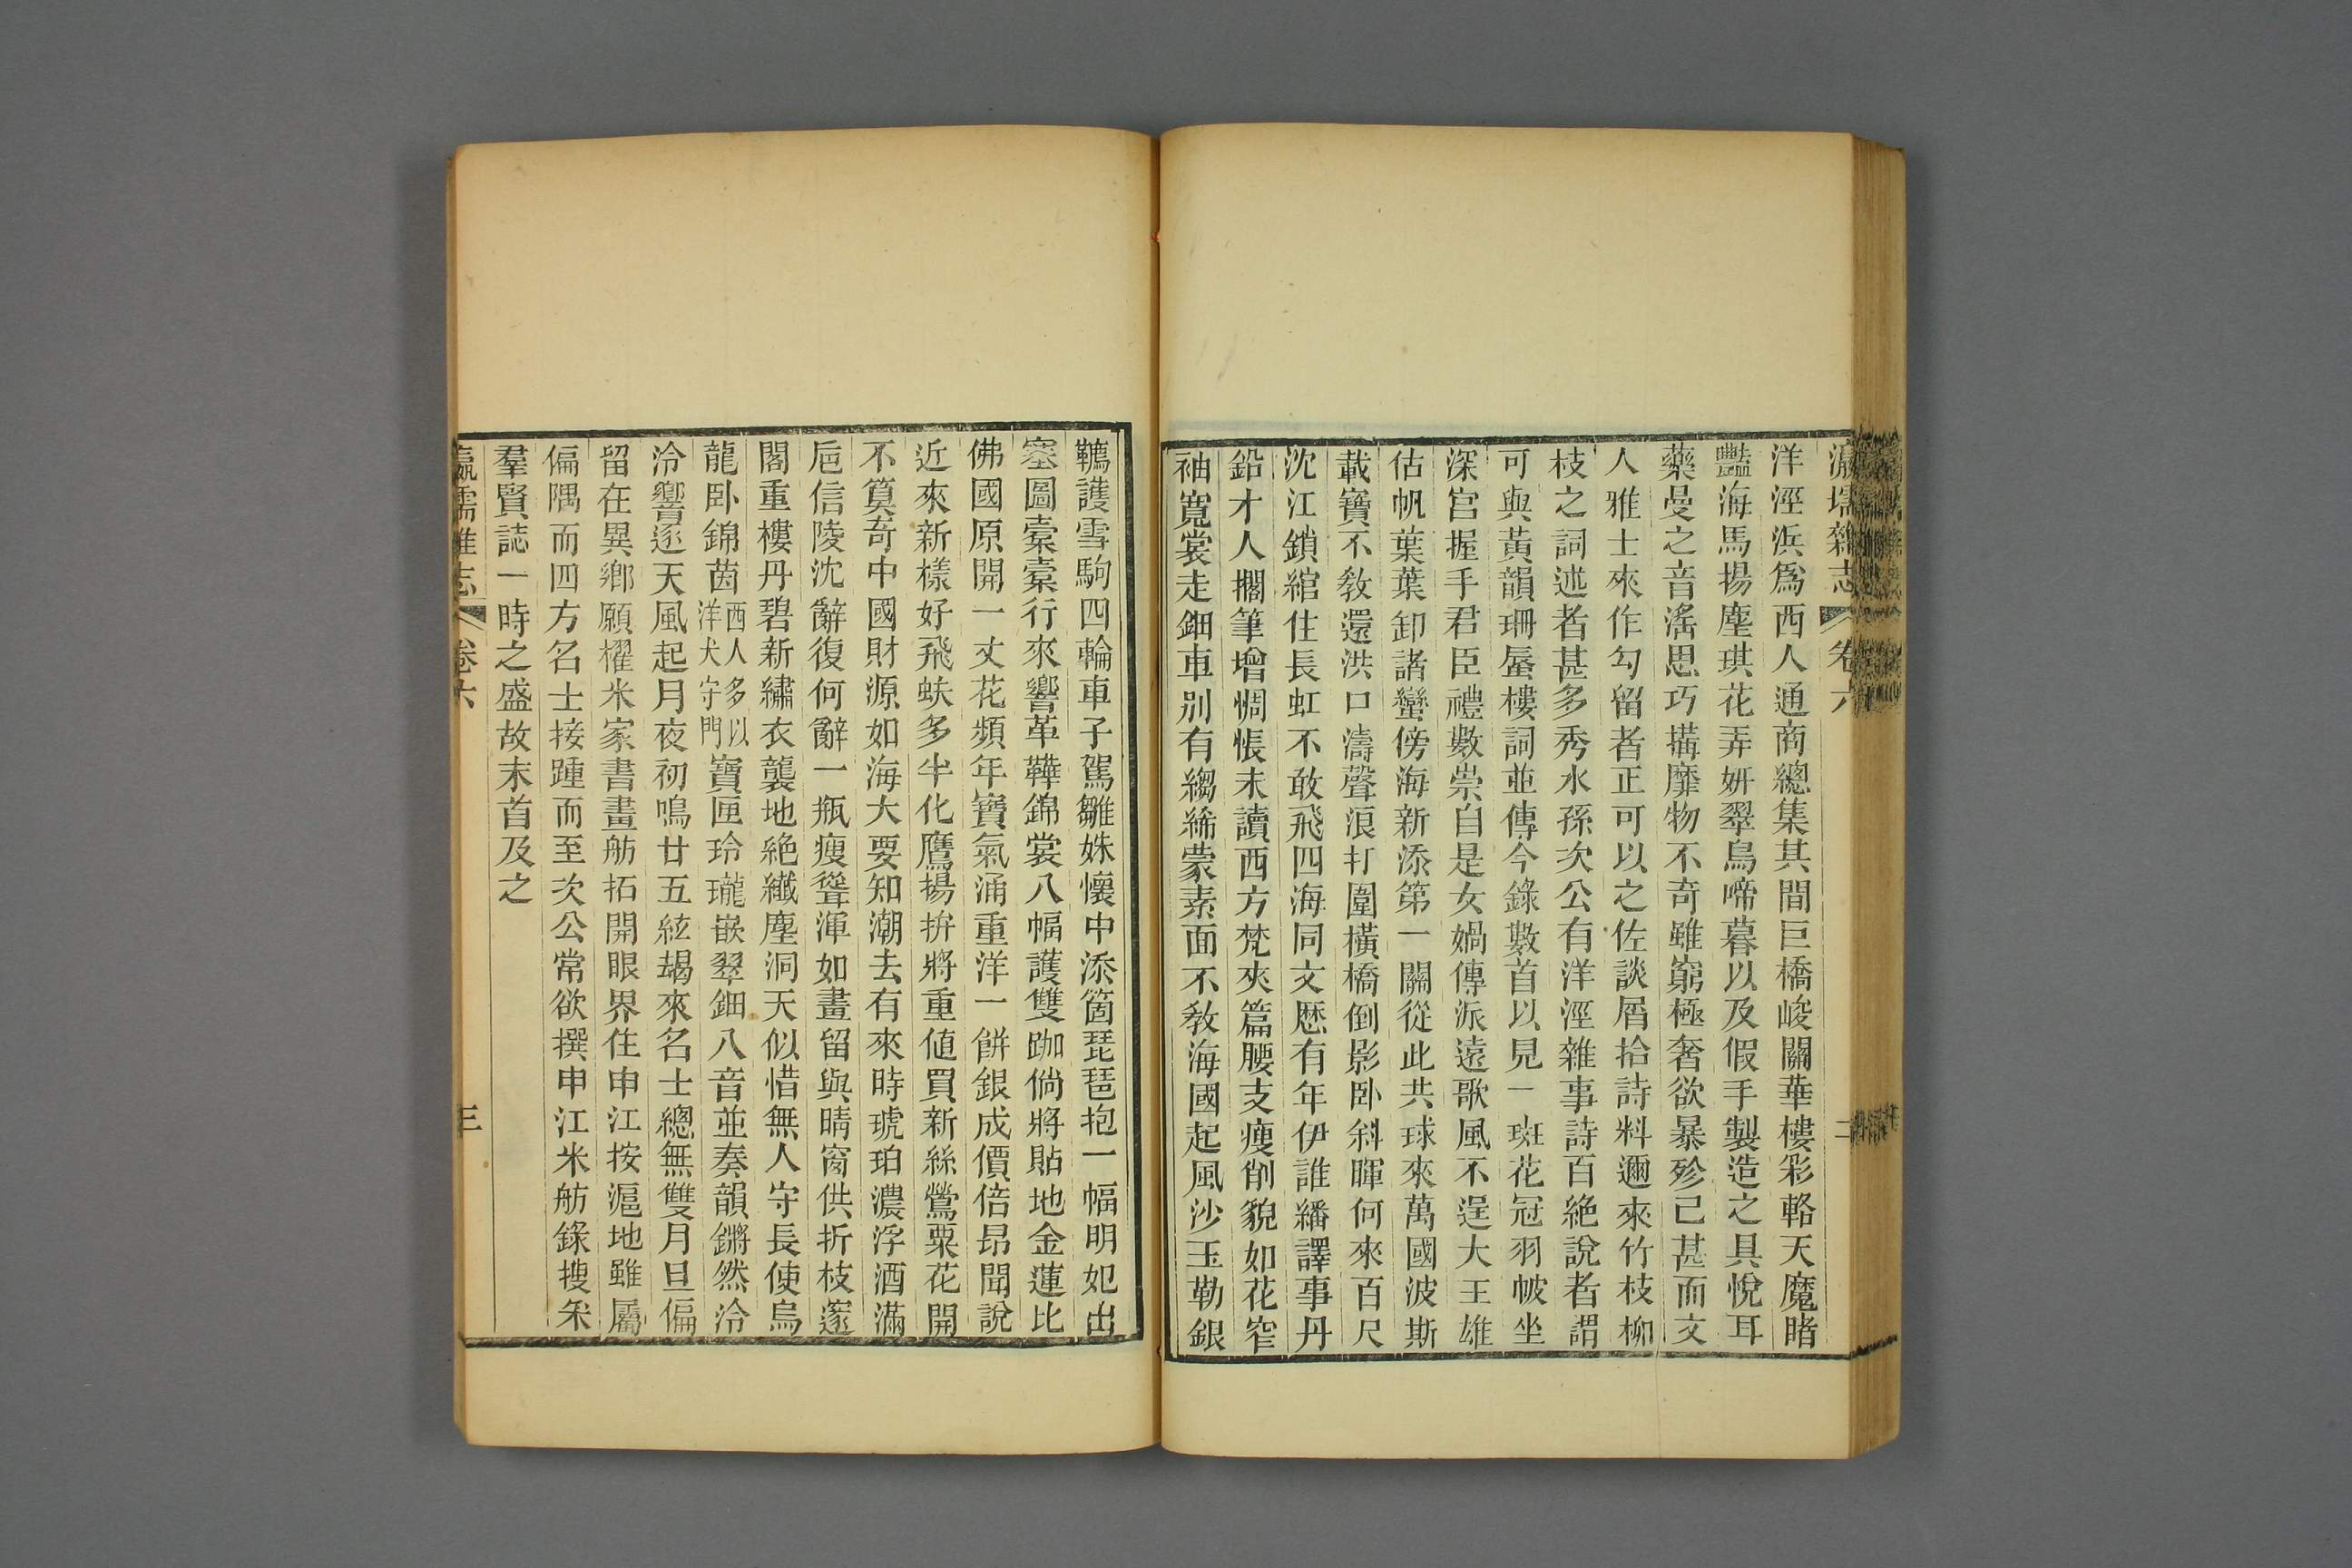 瀛壖雜志 卷六 二
洋涇浜爲西人通商總集其間巨橋峻關華樓彩輅天魔睹
豔海馬揚塵琪花弄妍翠鳥啼暮以及假手製造之具悅耳
藥曼之音滛思巧搆靡物不奇雖窮極奢欲暴殄已甚而文
人雅士來作勾留者正可以之佐談屑拾詩料邇來竹枝柳
枝之詞述者甚多秀水孫次公有洋涇雜事詩百絶說者謂
可與黃韻珊蜃樓詞並傳今錄數首以見一斑花冠羽帔坐
深宮握手君臣禮數崇自是女媧傳派遠歌風不逞大王雄
估帆葉葉卸諸蠻傍海新添第一關從此共球來萬國波斯
載寶不敎還洪口濤聲浪打圍橫橋倒影卧斜暉何來百尺
沈江鎖綰住長虹不敢飛四海同文歷有年伊誰繙譯事丹
鉛才人擱筆增惆悵未讀西方梵夾篇腰支瘦削貌如花窄
袖寬裳走鈿車别有縐絺蒙素面不敎海國起風沙玉勒銀
韉護雪駒四輪車子駕雛姝懷中添箇琵琶抱一幅明妃出
塞圖槖槖行來響革鞾錦裳八幅護雙跏倘將貼地金蓮比
佛國原開一丈花頻年寶氣涌重洋一餅銀成價倍昂聞說
近來新樣好飛蚨多半化鷹揚拚將重値買新絲鶯粟花開
不算奇中國財源如海大要知潮去有來時琥珀濃浮酒滿
巵信陵沈辭復何辭一瓶瘦聳渾如畫留與晴窗供折枝邃
閣重樓丹碧新繡衣襲地絶纖塵洞天似惜無人守長使烏
龍卧錦茵西人多以洋犬守門寶匣玲瓏嵌翠鈿八音並奏韻鏘然泠
泠響逐天風起月夜初鳴廿五絃朅來名士總無雙月旦偏
留在異鄉願櫂米家書畫舫拓開眼界住申江按滬地雖屬
偏隅而四方名士接踵而至次公常欲撰申江米舫錄搜采
羣賢誌一時之盛故末首及之
瀛壖雜志 卷六 三